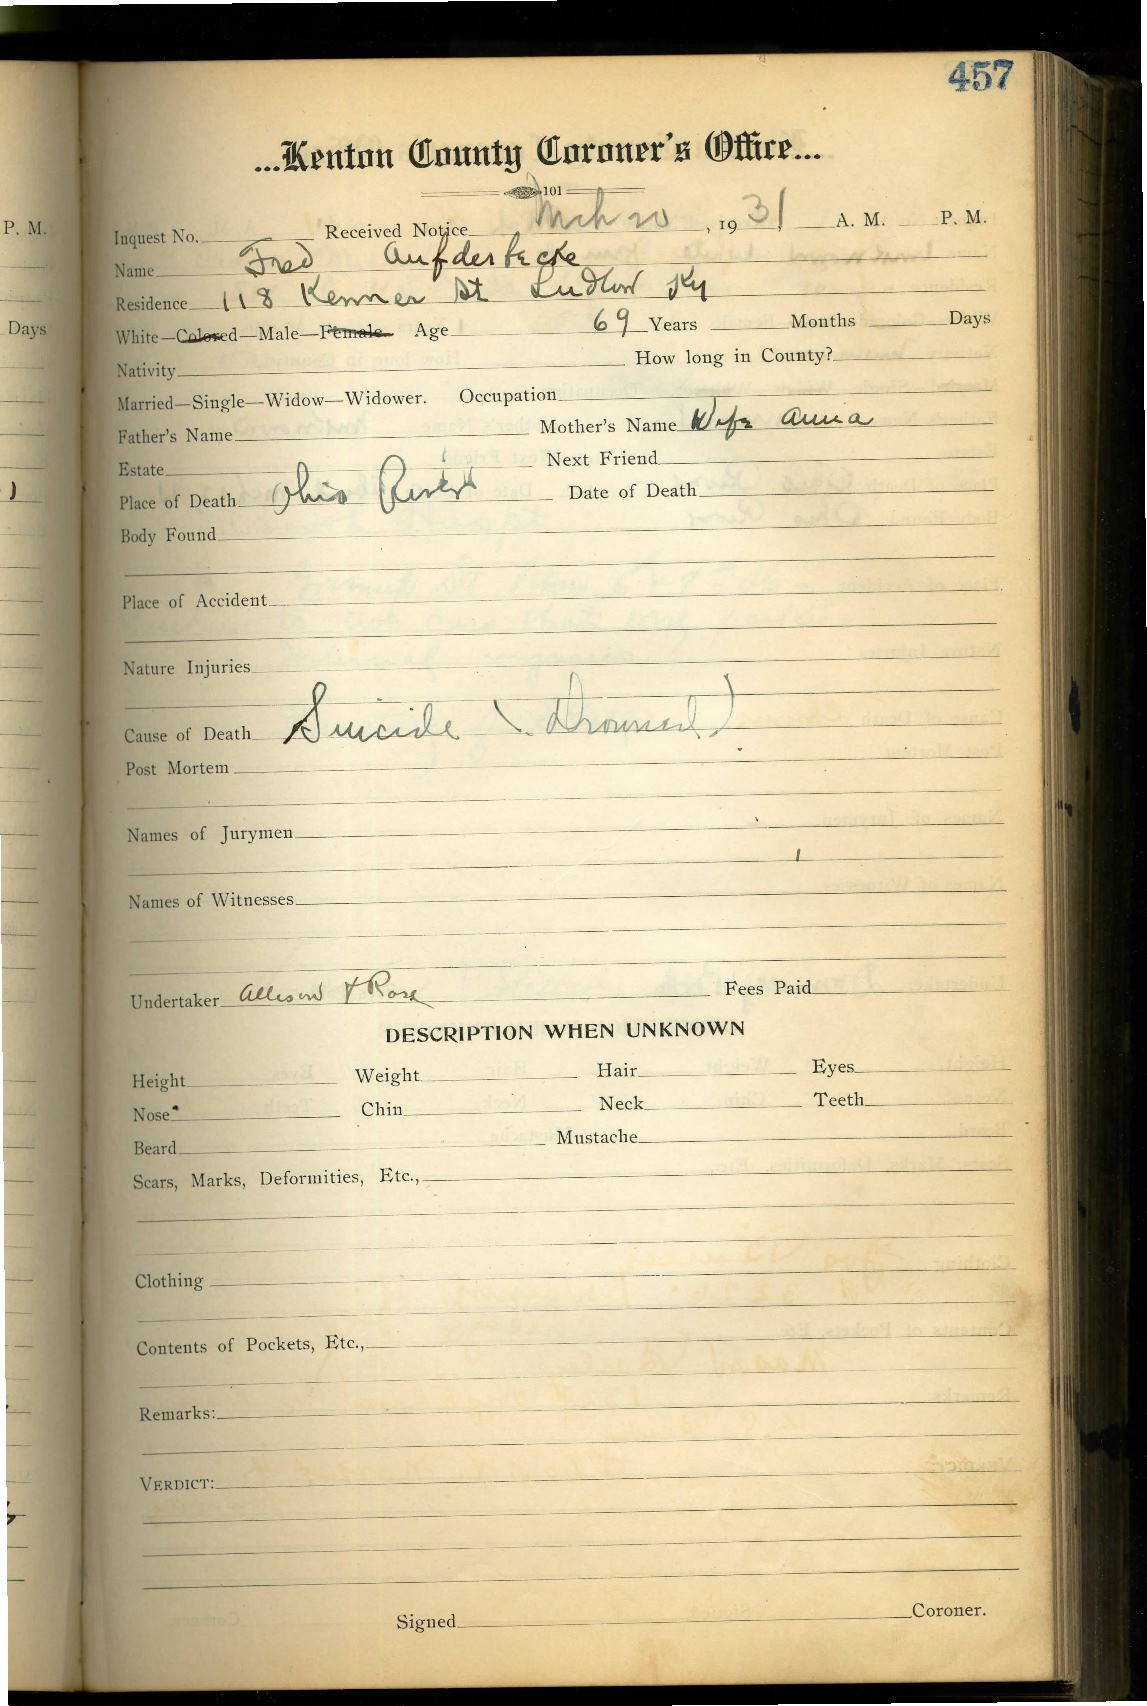 457
...Kenton County Coroner's Office...
101
Inquest No. Received Notice Mch 20, 1931 A. M. P. M.
Name Fred Aufderbecke
Residence 118 Kenner St Ludlow Ky
White—Colored—Male—Female Age 69 Years Months Days
Nativity How long in County?
Married—Single—Widow—Widower. Occupation
Father's Name Mother's Name Wife Anna
Estate Next Friend
Place of Death Ohio River Date of Death
Body Found
Place of Accident
Nature Injuries
Cause of Death Suicide (Drowned)
Post Mortem
Names of Jurymen
Names of Witnesses
Undertaker Allison & Rose Fees Paid
DESCRIPTION WHEN UNKNOWN
Height Weight Hair Eyes
Nose Chin Neck Teeth
Beard Mustache
Scars, Marks, Deformities, Etc.,
Clothing
Contents of Pockets, Etc.,
Remarks:
VERDICT:
Signed Coroner.
P. M.
Days